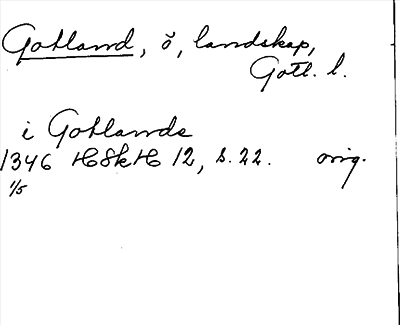 Gotland, ö, landskap,
Gotl. l.
i Gotlands
1346 HSkH 12, s. 22. orig.
1/5